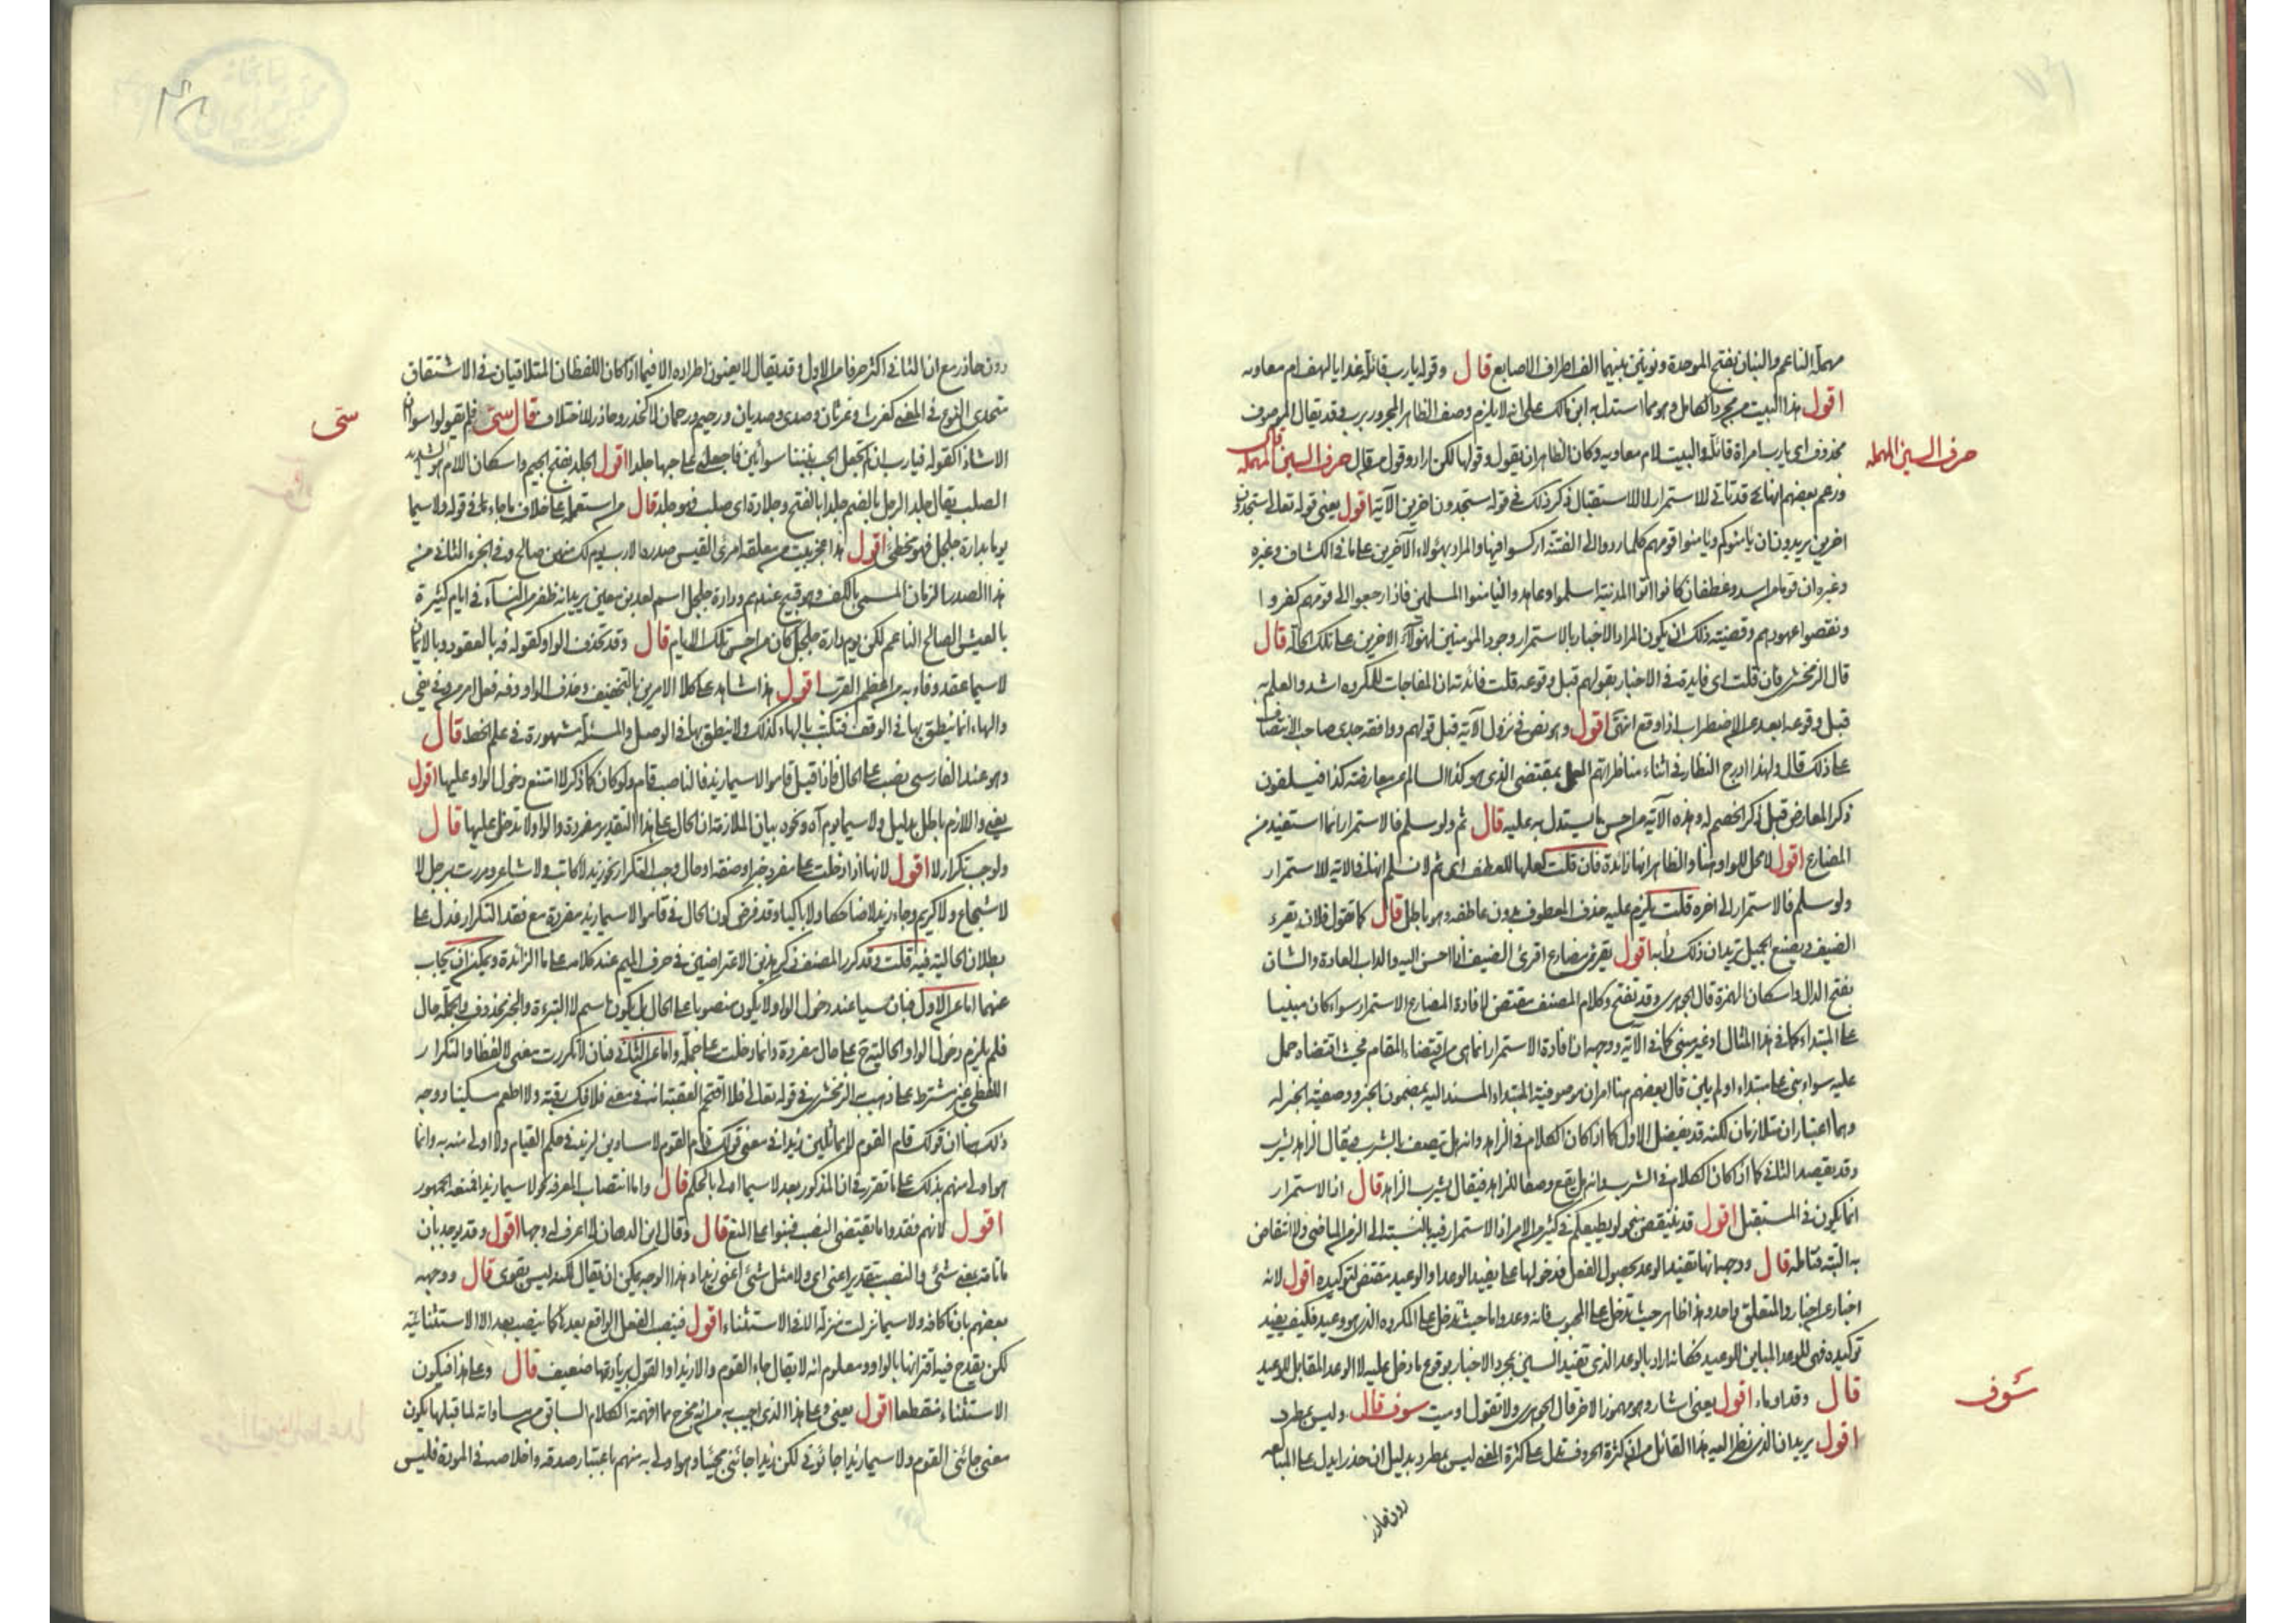 مهملة الناعم والبنان بفتح الموحدة ونونين بينهما الف اطراف الاصابع قال وقوله يارب قائلة غدا يالهف ام معاويه
اقول هذا البيت من مجزو الكامل وهو مما استدل به ابن مالك على انه لا يلزم وصف الظاهر المجرور برب وقد يقال الموصوف
محذوف اى يارب امراة قائلة والبيت لام معاويه وكان الظاهر ان يقول وقولها لكن اراد وقول من قال حرف السين المهمله قال
حرف السين المهمله
وزعم بعضهم انها قد تاتى للاستمرار لا للاستقبال ذكر ذلك فى قوله ستجدون اخرين الآية اقول يعنى قوله تعالى ستجدون
اخرين يريدون ان يأمنوكم ويأمنوا قومهم كلما ردوا الى الفتنة اركسوا فيها والمراد بهؤلاء الآخرين على ما فى الكشاف وغيره
وغيره ان قوما من اسد وغطفان كانوا اذا اتوا المدينة اسلموا وعاهدوا ليأمنوا المسلمين فاذا رجعوا الى قومهم كفروا
ونقضوا عهودهم وقضية ذلك ان يكون المراد الاخبار بالاستمرار وجود المؤمنين لهؤلاء الاخرين على تلك الحالة قال
قال الزمخشرى فان قلت اى فايدة فى الاخبار بقولهم قبل وقوعه قلت فائدته ان المفاجات للمكروه اشد والعلم به
قبل وقوعه ابعد عن الاضطراب اذا وقع انتهى اقول وهو نص فى نزول الآية قبل قولهم ووافقه جدى صاحب الانتصاف
على ذلك قال ولهذا ادرج النظار فى اثناء مناظراتهم العمل بمقتضى الذى هو كذا السالم عن معارضته كذا فيسلفون
ذكر المعارض قبل ذكر الخصم له وهذه الآية من احسن ما يستدل به عليه قال ثم ولو سلم فالاستمرار انما استفيد من
المضارع اقول لا محل للواو هنا والظاهر انها زائدة فان قلت لعلها للعطف اى ثم لا نسلم انها فى الآية للاستمرار
ولو سلم فالاستمرار الى اخره قلت يلزم عليه حذف المعطوف بدون عاطفه وهو باطل قال كما تقول فلان يقرى
الضيف ويصنع الجميل تريد ان ذلك دأبه اقول يقرى مضارع اقرى الضيف اذا احسن اليه والداب العادة والشان
بفتح الدال واسكان الهمزة قال الجوهرى وقد تفتح وكلام المصنف مقتض لافادة المضارع الاستمرار سواء كان مبنيا
على المبتداء كما فى هذا المثال او غير مبنى كما فى الآية ووجهه ان افادة الاستمرار انما هى من اقتضاء المقام فحيث اقتضاه حمل
عليه سواء بنى على مبتداء او لم يبن قال بعضهم هنا امران موصوفية المبتداء المسند اليه بمضمون الخبر ووصفية الخبر له
وهما اعتباران متلازمان لكنه قد يفضل الاول كما اذا كان الكلام فى الزاهد وانه هل يتصف بالشرب فيقال الزاهد يشرب
وقد يقصد الثانى كما اذا كان الكلام فى الشرب وانه هل يقع وصفا للزاهد فيقال يشرب الزاهد قال اذ الاستمرار
انما يكون فى المستقبل اقول قد ينتقض بنحو لو يطيعكم فى كثير من الامر اذ الاستمرار فيه بالنسبة الى الزمن الماضى ولا انتقاض
به البتة فتامله قال ووجه انها تفيد الوعد بحصول الفعل فدخولها على ما يفيد الوعد او الوعيد مقتض لتوكيده اقول لانه
اخبار عن اخبار والمتعلق واحد وهذا ظاهر حيث تدخل على المحبوب فانه وعد واما حيث تدخل على المكروه الذى هو وعيد فكيف يفيد
توكيده فهى للوعد المباين للوعيد فكانه اراد بالوعد الذى تفيد السين مجرد الاخبار بوقوع ما دخل عليه لا الوعد المقابل للوعيد
قال وقد اوماء اقول يعنى اشار وهو مهموز الاخر قال الجوهرى ولا تقول اوميت سوف قال وليس بمطرد
سَوف
اقول يريد ان الذى نظر اليه هذا القائل من ان كثرة الحروف تدل على كثرة المعنى ليس بمطرد بدليل ان حذرا يدل على المبالغه
دون حاذر
دون حاذر مع ان الثانى اكثر حرفا من الاول وقد يقال لا يعنون اطراده الا فيما اذا كان اللفظان المتلاقيان فى الاشتقاق
متحدى النوع فى المعنى كغرث وغرثان وصدى وصديان ورحيم ورحمان لا كحذر وحاذر للاختلاف قال سىّ فلم يقولوا سواان
سىّ
الا شاذا كقوله فيارب ان لم تجعل الحب بيننا سوائين فاجعلنى على حبها جلدا اقول الجلد بفتح الجيم واسكان اللام هو الشديد
الصلب يقال جلد الرجل بالضم جلدا بالفتح وجلادة اى صلب فهو جلد قال من استعمله على خلاف ما جاء فى قوله ولا سيما
يوما بدارة جلجل فهو مخطئ اقول هذا عجز بيت من معلقة امرئ القيس صدره الا رب يوم لك منهن صالح وفى الجزء الثانى من
هذا الصدر الزمان المسمى بالكف وهو قبيح عندهم ودارة جلجل اسم لغدير معين يريد انه ظفر من النسآء فى ايام كثيرة
بالعيش الصالح الناعم لكن يوم دارة جلجل كان من احسن تلك الايام قال وقد تحذف الواو كقوله فه بالعقود وبالايمان
لاسيما عقد وفاء به من اعظم القرب اقول هذا شاهد على كلا الامرين التخفيف وحذف الواو وفه فعل امر من وفى يفى
والهاء انما ينطق بها فى الوقف فتكتب بالهاء كذلك ولا ينطق بها فى الوصل والمسئلة مشهورة فى علم الخط قال
وهو عند الفارسى نصب على الحال فاذا قيل قاموا لاسيما زيد فالناصب قام ولو كان كما ذكر لامتنع دخول الواو عليها اقول
يعنى واللازم باطل بدليل ولا سيما يوم آه ونحوه بيان الملازمة ان الحال على هذا التقدير مفردة والواو لا تدخل عليها قال
ولوجب تكرار لا اقول لانها اذا دخلت على مفرد خبر او صفة او حال وجب التكرار نحو زيد لا كاتب ولا شاعر ومررت برجل لا
لا شجاع ولا كريم وجاء زيد لا ضاحكا ولا باكيا وقد فرض كون الحال فى قاموا لاسيما زيد مفردة مع فقد التكرار فدل على
بطلان الحالية فيه قلت وقد كرر المصنف ذكر هذين الاعتراضين فى حرف الميم عند كلامه على ما الزائدة ويمكن ان يجاب
عنهما اما عن الاول فبان سيا عند دخول الواو لا يكون منصوبا على الحال بل يكون اسم لا التبرءة والخبر محذوف والجملة حال
فلم يلزم دخول الواو الحالية على حال مفردة وانما دخلت على جملة واما عن الثانى فبان لا تكررت معنى لا لفظا والتكرار
اللفظى غير مشترط على ما ذهب الزمخشرى فى قوله تعالى فلا اقتحم العقبة انه فى معنى فلا فك رقبة ولا اطعم مسكينا ووجه
ذلك هنا ان قولك قام القوم لا مماثلين زيدا فى معنى قولك قام القوم لا مساوين لزيد فى حكم القيام ولا اولى منه به وانما
هو اولى منهم بذلك على ما تقرر فى ان المذكور بعد لاسيما اولى بالحكم قال واما انتصاب المعرفه نحو لاسيما زيدا فمنعه الجمهور
اقول لانهم فقدوا ما يقتضى النصب فبنوا على المنع قال وقال ابن الدهان لا اعرف له وجها اقول وقد يوجه بان
ما تامة بمعنى شئ والنصب بتقدير اعنى اى ولا مثل شئ اعنى زيدا وهذا الوجه يمكن ان يقال لكنه ليس بقوى قال ووجهه
بعضهم بان ما كافه ولاسيما نزلت منزلة الا فى الاستثناء اقول فينصب الفعل الواقع بعدها كما ينصب بعد الا الاستثنائية
لكن يقدح فيه اقترانها بالواو ومعلوم انه لا يقال جاء القوم والا زيدا والقول بزيادتها ضعيف قال وعلى هذا فيكون
الاستثناء منقطعا اقول يعنى وعلى هذا الذى اجيب به من انه مخرج مما افهمه الكلام السابق من مساواته لما قبلها يكون
معنى جائنى القوم ولا سيما زيدا جائونى لكن زيدا جائنى مجيئا هو اولى به منهم باعتبار صدقه واخلاصه فى المودة فليس